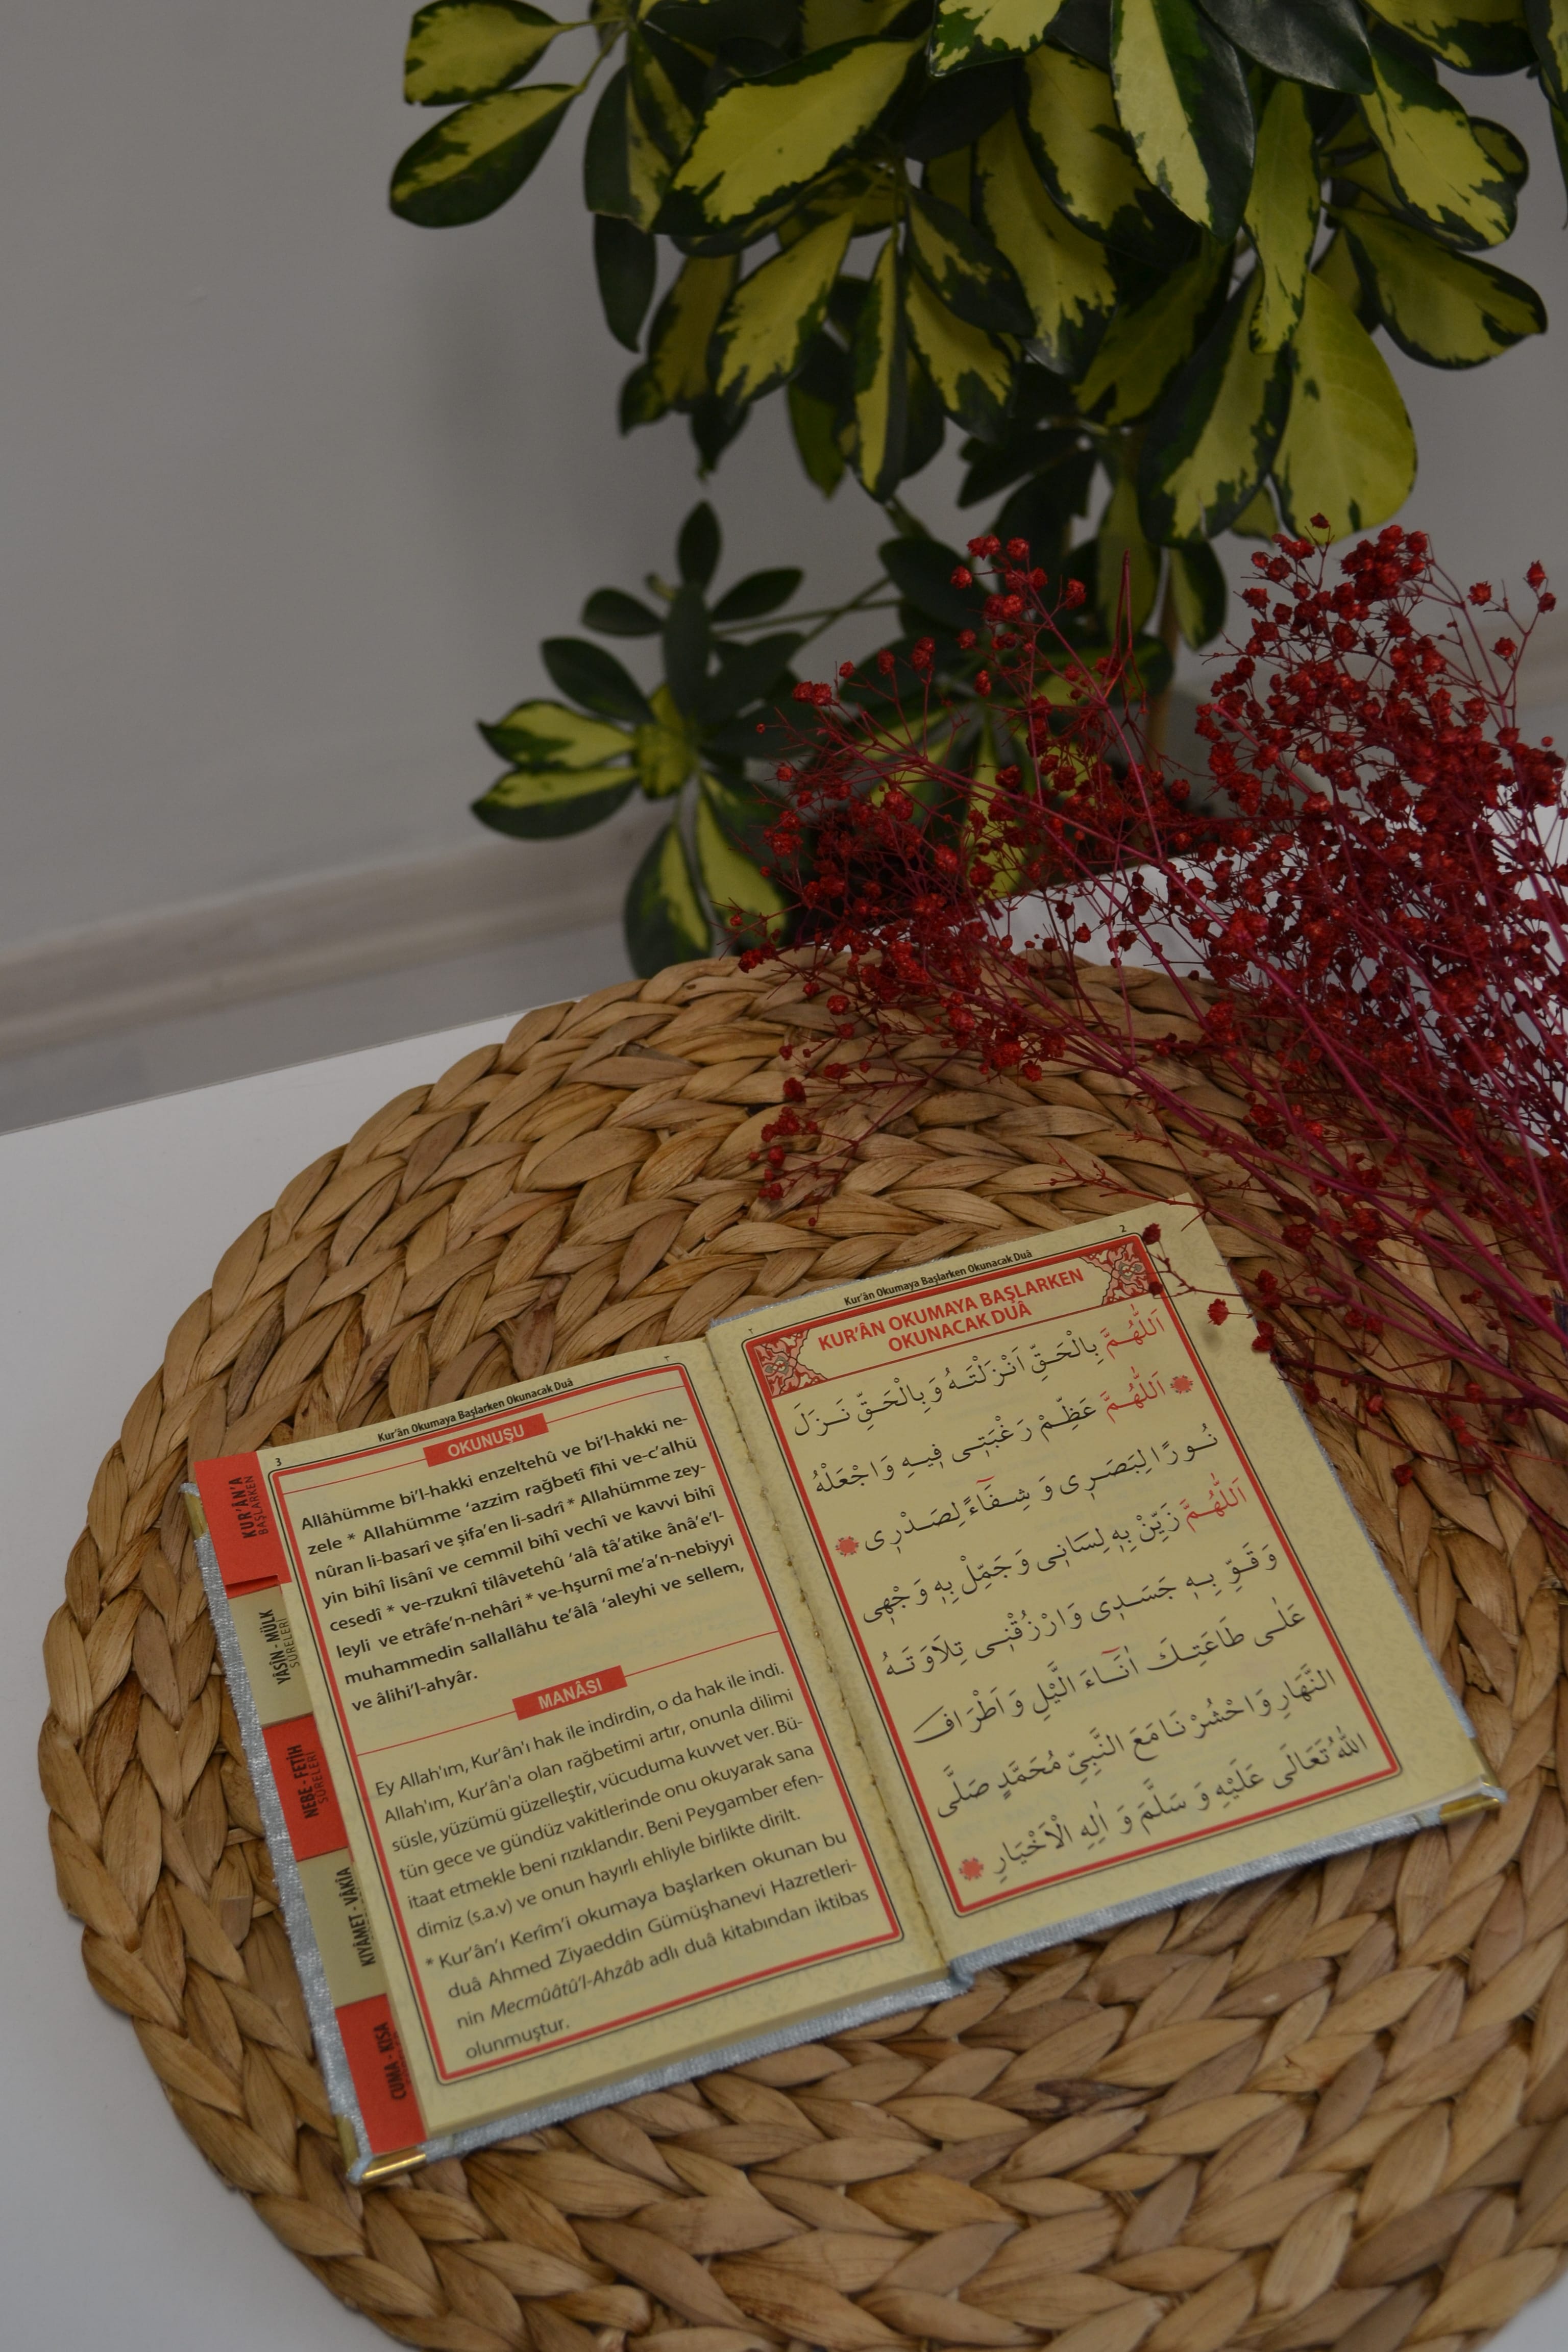 Kur'ân Okumaya Başlarken Okunacak Duâ
2
٢
KUR'ÂN OKUMAYA BAŞLARKEN
OKUNACAK DUÂ
اَللّٰهُمَّ بِالْحَقِّ اَنْزَلْتَهُ وَبِالْحَقِّ نَزَلَ
* اَللّٰهُمَّ عَظِّمْ رَغْبَتِى فِيهِ وَاجْعَلْهُ
نُورًا لِبَصَرِى وَ شِفَٓاءً لِصَدْرِى *
اَللّٰهُمَّ زَيِّنْ بِهِ لِسَانِى وَجَمِّلْ بِهِ وَجْهِى
وَقَوِّ بِهِ جَسَدِى وَارْزُقْنِى تِلَاوَتَهُ
عَلٰى طَاعَتِكَ اٰنَٓاءَ الَّيْلِ وَاَطْرَافَ
النَّهَارِ وَاحْشُرْنَا مَعَ النَّبِيِّ مُحَمَّدٍ صَلَّى
اللّٰهُ تَعَالٰى عَلَيْهِ وَ سَلَّمَ وَ اٰلِهِ الْاَخْيَارِ *
Kur'ân Okumaya Başlarken Okunacak Duâ
3
٣
OKUNUŞU
Allâhümme bi'l-hakki enzeltehû ve bi'l-hakki ne-
zele * Allahümme 'azzim rağbetî fîhi ve-c'alhü
nûran li-basarî ve şifa'en li-sadrî * Allahümme zey-
yin bihî lisânî ve cemmil bihî vechî ve kavvi bihî
cesedî * ve-rzuknî tilâvetehû 'alâ tâ'atike ânâ'e'l-
leyli ve etrâfe'n-nehâri * ve-hşurnî me'a'n-nebiyyi
muhammedin sallallâhu te'âlâ 'aleyhi ve sellem,
ve âlihi'l-ahyâr.
MANÂSI
Ey Allah'ım, Kur'ân'ı hak ile indirdin, o da hak ile indi.
Allah'ım, Kur'ân'a olan rağbetimi artır, onunla dilimi
süsle, yüzümü güzelleştir, vücuduma kuvvet ver. Bü-
tün gece ve gündüz vakitlerinde onu okuyarak sana
itaat etmekle beni rızıklandır. Beni Peygamber efen-
dimiz (s.a.v) ve onun hayırlı ehliyle birlikte dirilt.
* Kur'ân'ı Kerîm'i okumaya başlarken okunan bu
duâ Ahmed Ziyaeddin Gümüşhanevi Hazretleri-
nin Mecmûâtû'l-Ahzâb adlı duâ kitabından iktibas
olunmuştur.
KUR'ÂN'A
BAŞLARKEN
YÂSİN - MÜLK
SÛRELERİ
NEBE - FETİH
SÛRELERİ
KIYÂMET - VÂKIA
CUMA - KISA